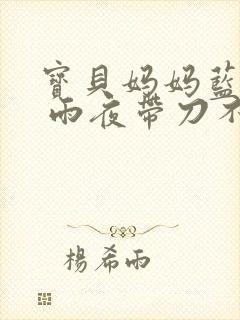 寶貝妈妈藍
雨夜帶刀不
楊希雨